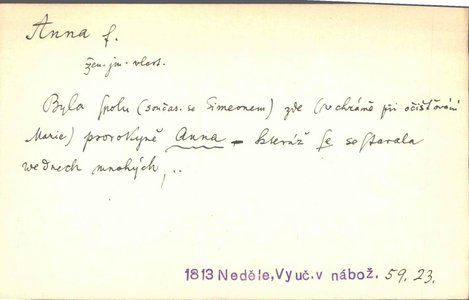 Anna f.
žen. jm. vlast.
Byla spolu (součas. se Simeonem) zde (v chrámě při očišťování
Marie) prorokyně Anna – kteráž se sestarala
we dnech mnohých, ..
1813 Neděle, Vyuč. v nábož. 59. 23.